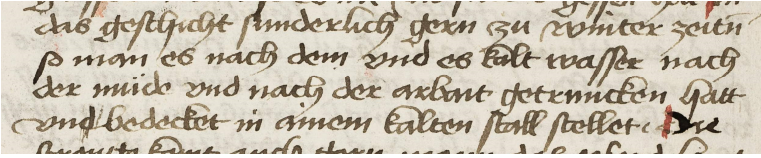 das geschicht sunderlich gern zu winter zeitn
so man es nach dem vnd es kalt wasser nach
der müde vnd nach der arbait getruncken hatt
vnd bedecket in ainem kalten stall stellet. Die